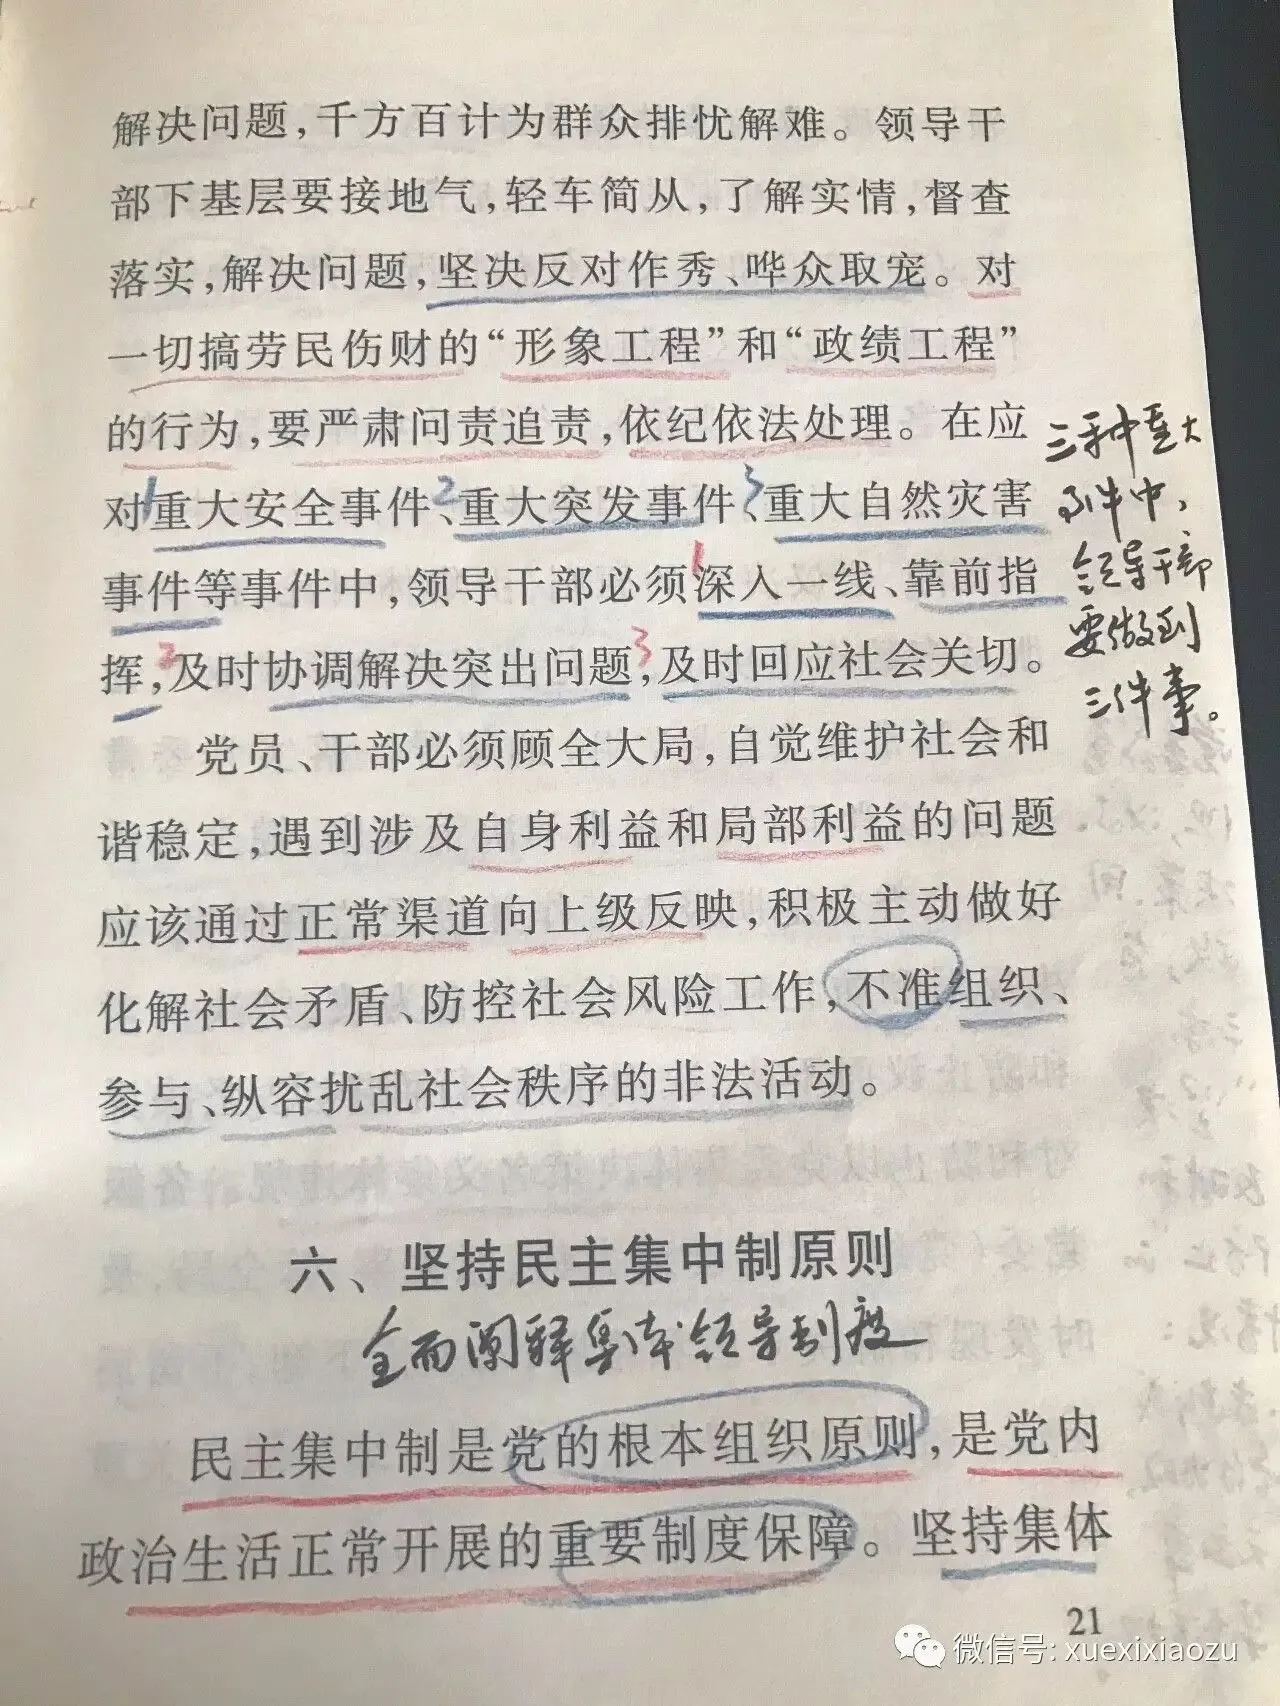 解决问题，千方百计为群众排忧解难。领导干
部下基层要接地气，轻车简从，了解实情，督查
落实，解决问题，坚决反对作秀、哗众取宠。对
一切搞劳民伤财的“形象工程”和“政绩工程”
的行为，要严肃问责追责，依纪依法处理。在应
对1重大安全事件、2重大突发事件、3重大自然灾害
事件等事件中，领导干部必须1深入一线、靠前指
挥，2及时协调解决突出问题，3及时回应社会关切。
三种重大
事件中，
领导干部
要做到
三件事。
党员、干部必须顾全大局，自觉维护社会和
谐稳定，遇到涉及自身利益和局部利益的问题
应该通过正常渠道向上级反映，积极主动做好
化解社会矛盾、防控社会风险工作，不准组织、
参与、纵容扰乱社会秩序的非法活动。
六、坚持民主集中制原则
全面阐释集体领导制度
民主集中制是党的根本组织原则，是党内
政治生活正常开展的重要制度保障。坚持集体
21
微信号: xuexixiaozu